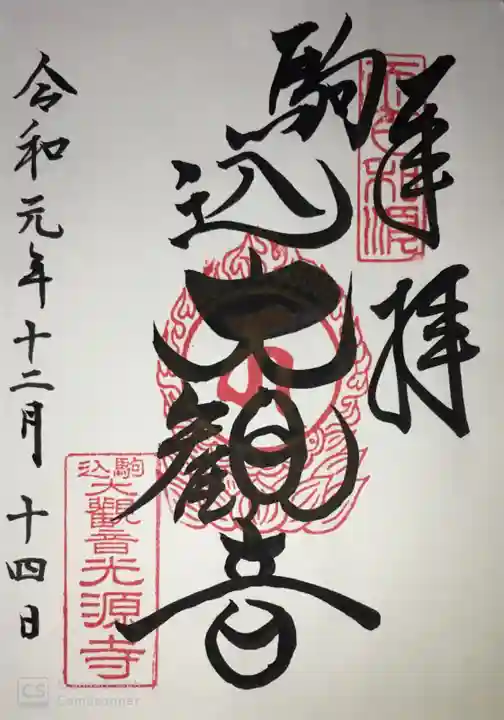 奉拝
駒込大観音
令和元年十二月十四日
駒込大觀音光源寺
CS
CamScanner